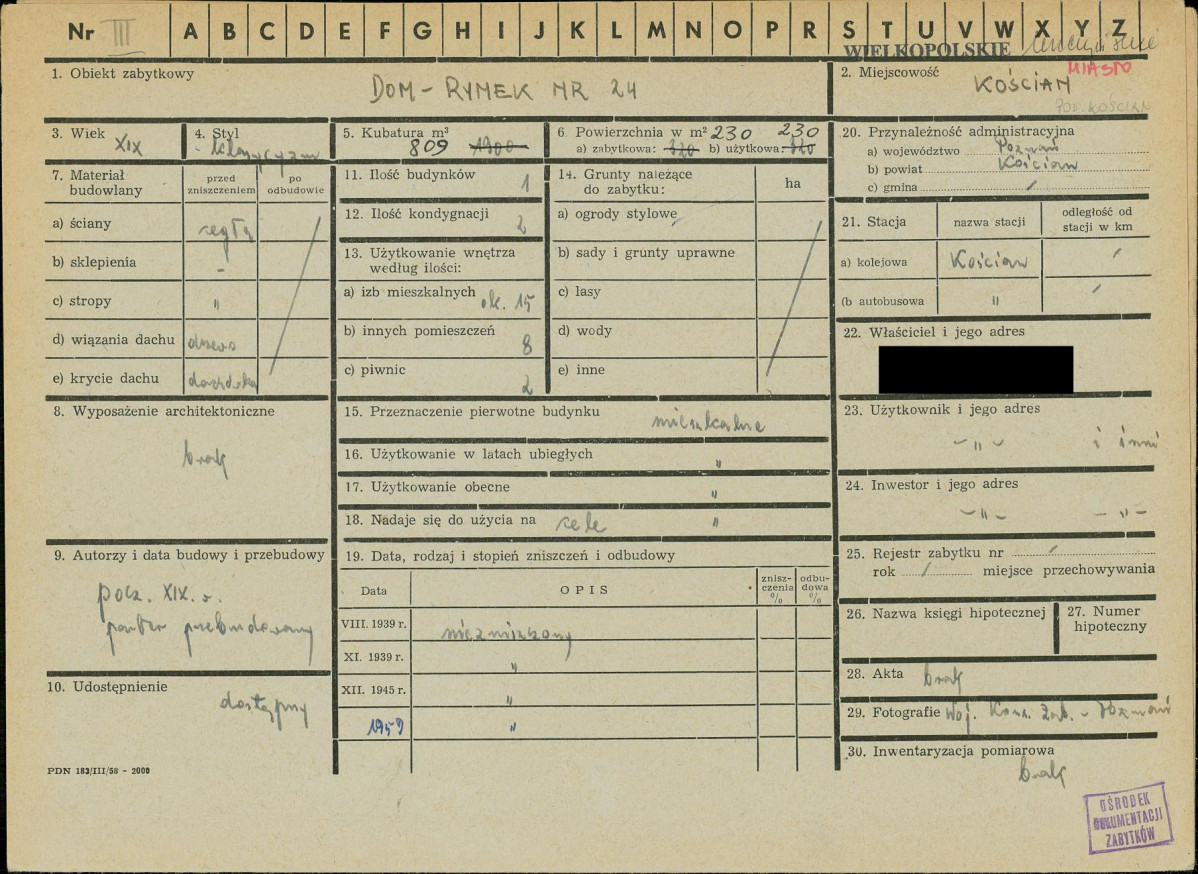 Nr III A B C D E F G H I J K L M N O P R S T U V W X Y Z
WIELKOPOLSKIE
1. Obiekt zabytkowy
DOM - RYNEK NR 24
2. Miejscowość
MIASTO
KOŚCIAN
POW. KOŚCIAN
3. Wiek
XIX
4. Styl
- klasycyzm
5. Kubatura m³
809 1300
6. Powierzchnia w m² 230 230
a) zabytkowa: 320 b) użytkowa: 320
7. Materiał budowlany
przed zniszczeniem
po odbudowie
a) ściany cegła
b) sklepienia -
c) stropy "
d) wiązania dachu drewo
e) krycie dachu dachówka
8. Wyposażenie architektoniczne
brak
9. Autorzy i data budowy i przebudowy
pocz. XIX w.
parter przebudowany
10. Udostępnienie
dostępny
PDN 183/III/58 - 2000
11. Ilość budynków 1
12. Ilość kondygnacji 2
13. Użytkowanie wnętrza
według ilości:
a) izb mieszkalnych ok. 15
b) innych pomieszczeń 8
c) piwnic 2
14. Grunty należące
do zabytku:
ha
a) ogrody stylowe
b) sady i grunty uprawne
c) lasy
d) wody
e) inne
15. Przeznaczenie pierwotne budynku mieszkalne
16. Użytkowanie w latach ubiegłych "
17. Użytkowanie obecne "
18. Nadaje się do użycia na cele "
19. Data, rodzaj i stopień zniszczeń i odbudowy
Data
OPIS
znisz-
czenia
%
odbu-
dowa
%
VIII. 1939 r. niezniszczony
XI. 1939 r. "
XII. 1945 r. "
1959 "
20. Przynależność administracyjna
a) województwo Poznań
b) powiat Kościan
c) gmina /
21. Stacja
nazwa stacji
odległość od
stacji w km
a) kolejowa Kościan /
(b autobusowa " /
22. Właściciel i jego adres
23. Użytkownik i jego adres
- " - i inni
24. Inwestor i jego adres
- " - - " -
25. Rejestr zabytku nr /
rok / miejsce przechowywania
26. Nazwa księgi hipotecznej
27. Numer
hipoteczny
28. Akta brak
29. Fotografie Woj. Kons. Zab. - Poznań
30. Inwentaryzacja pomiarowa
brak
OŚRODEK
DOKUMENTACJI
ZABYTKÓW